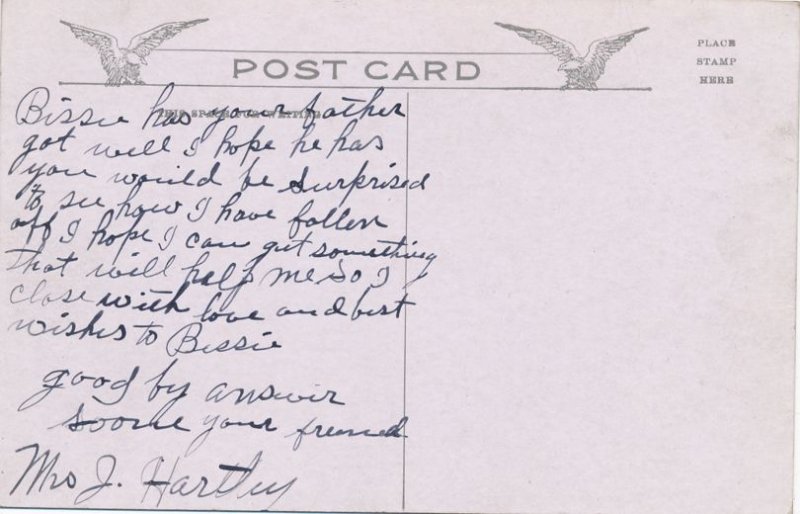 POST CARD
PLACE
STAMP
HERE
THIS SPACE FOR WRITING
Bissie has your father
got well I hope he has
you would be surprised
to see how I have fallen
off I hope I can get something
that will help me So I
close with love and best
wishes to Bissie
good by answer
soone your freund
Mrs J. Hartley